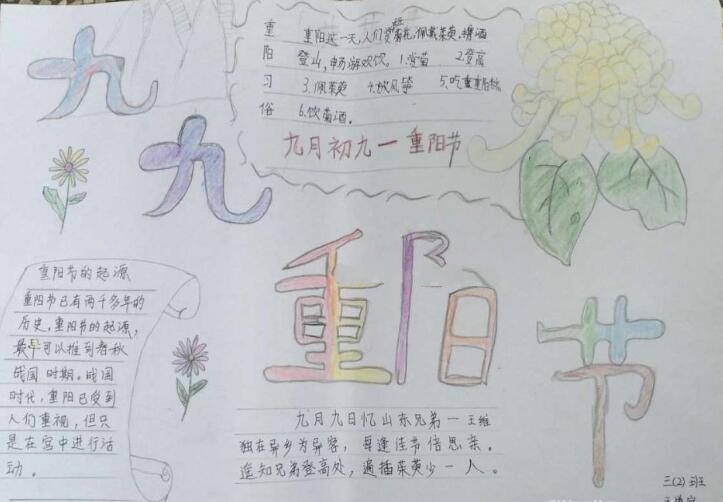 九
九
重阳习俗
重阳这一天,人们赏菊花,佩戴茱萸,携酒
登山,畅游欢饮。1.赏菊 2.登高
3.佩茱萸 4.放风筝 5.吃重阳糕
6.饮菊酒。
九月初九一重阳节
重阳节
重阳节的起源
重阳节已有两千多年的
历史,重阳节的起源,
最早可以推到春秋
战国时期。战国
时代,重阳已受到
人们重视,但只
是在宫中进行活
动。
九月九日忆山东兄弟一王维
独在异乡为异客,每逢佳节倍思亲。
遥知兄弟登高处,遍插茱萸少一人。
三(2)班